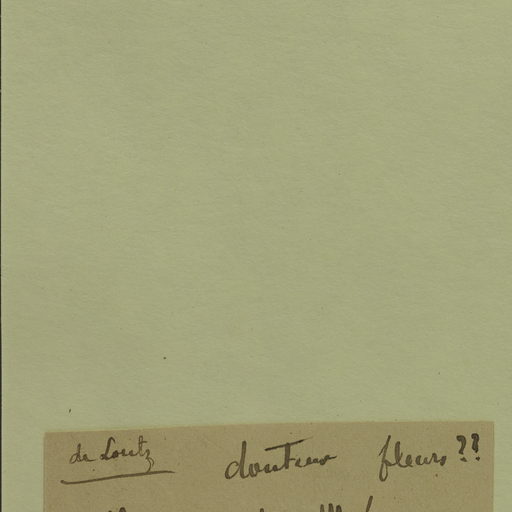 de Loutz douteux fleurs ??